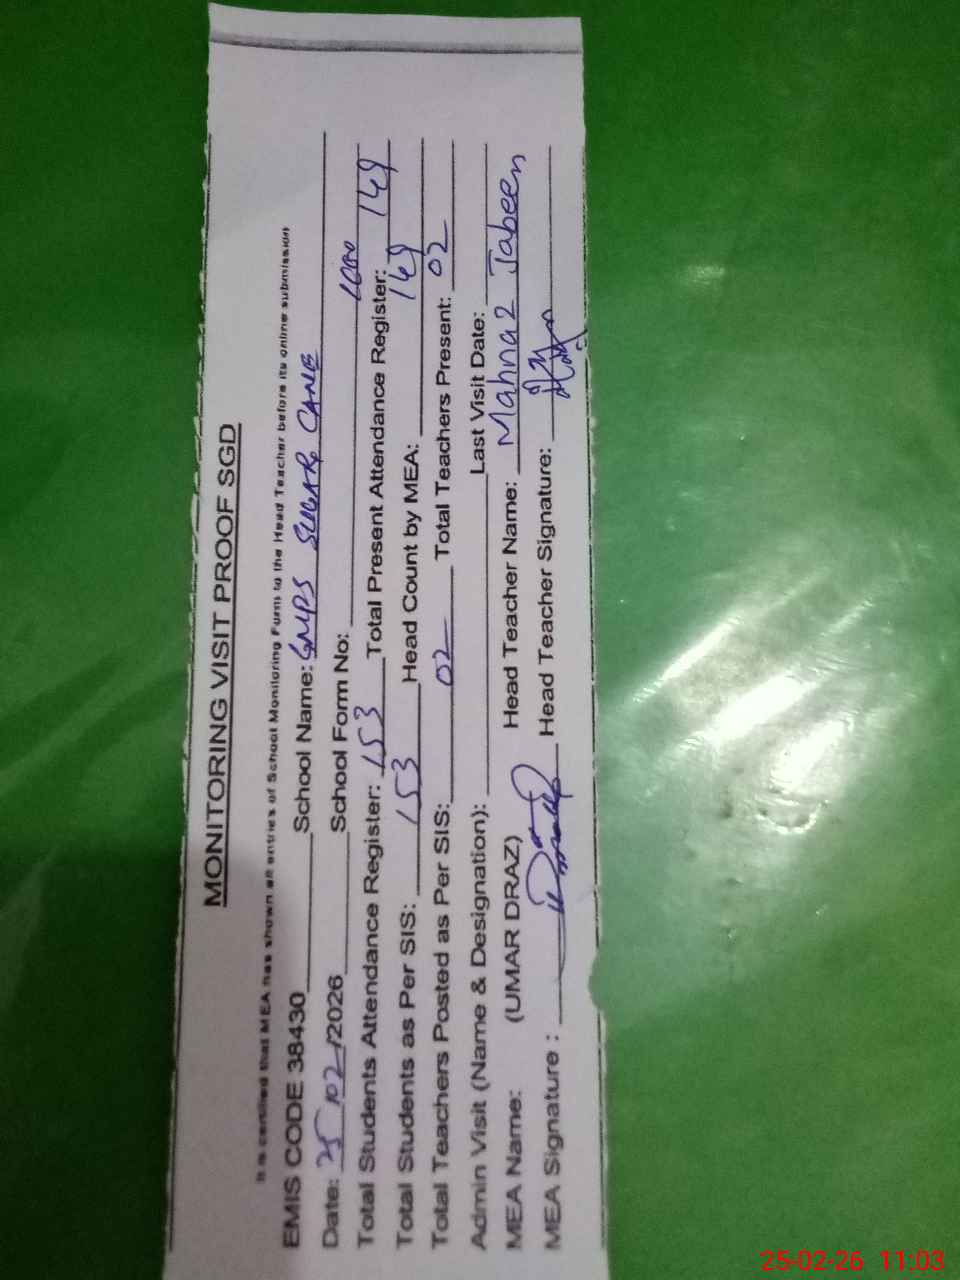 MONITORING VISIT PROOF SGD
It is certified that MEA has shown all entries of School Monitoring Form to the Head Teacher before its online submission
EMIS CODE 38430 School Name: GMPS SUGAR CANE
Date: 25/02/2026 School Form No:
Total Students Attendance Register: 153 Total Present Attendance Register: 149
Total Students as Per SIS: 153 Head Count by MEA: 149
Total Teachers Posted as Per SIS: 02 Total Teachers Present: 02
Admin Visit (Name & Designation): Last Visit Date:
MEA Name: (UMAR DRAZ) Head Teacher Name: Mahnaz Jabeen
MEA Signature : Head Teacher Signature:
25-02-26 11:03